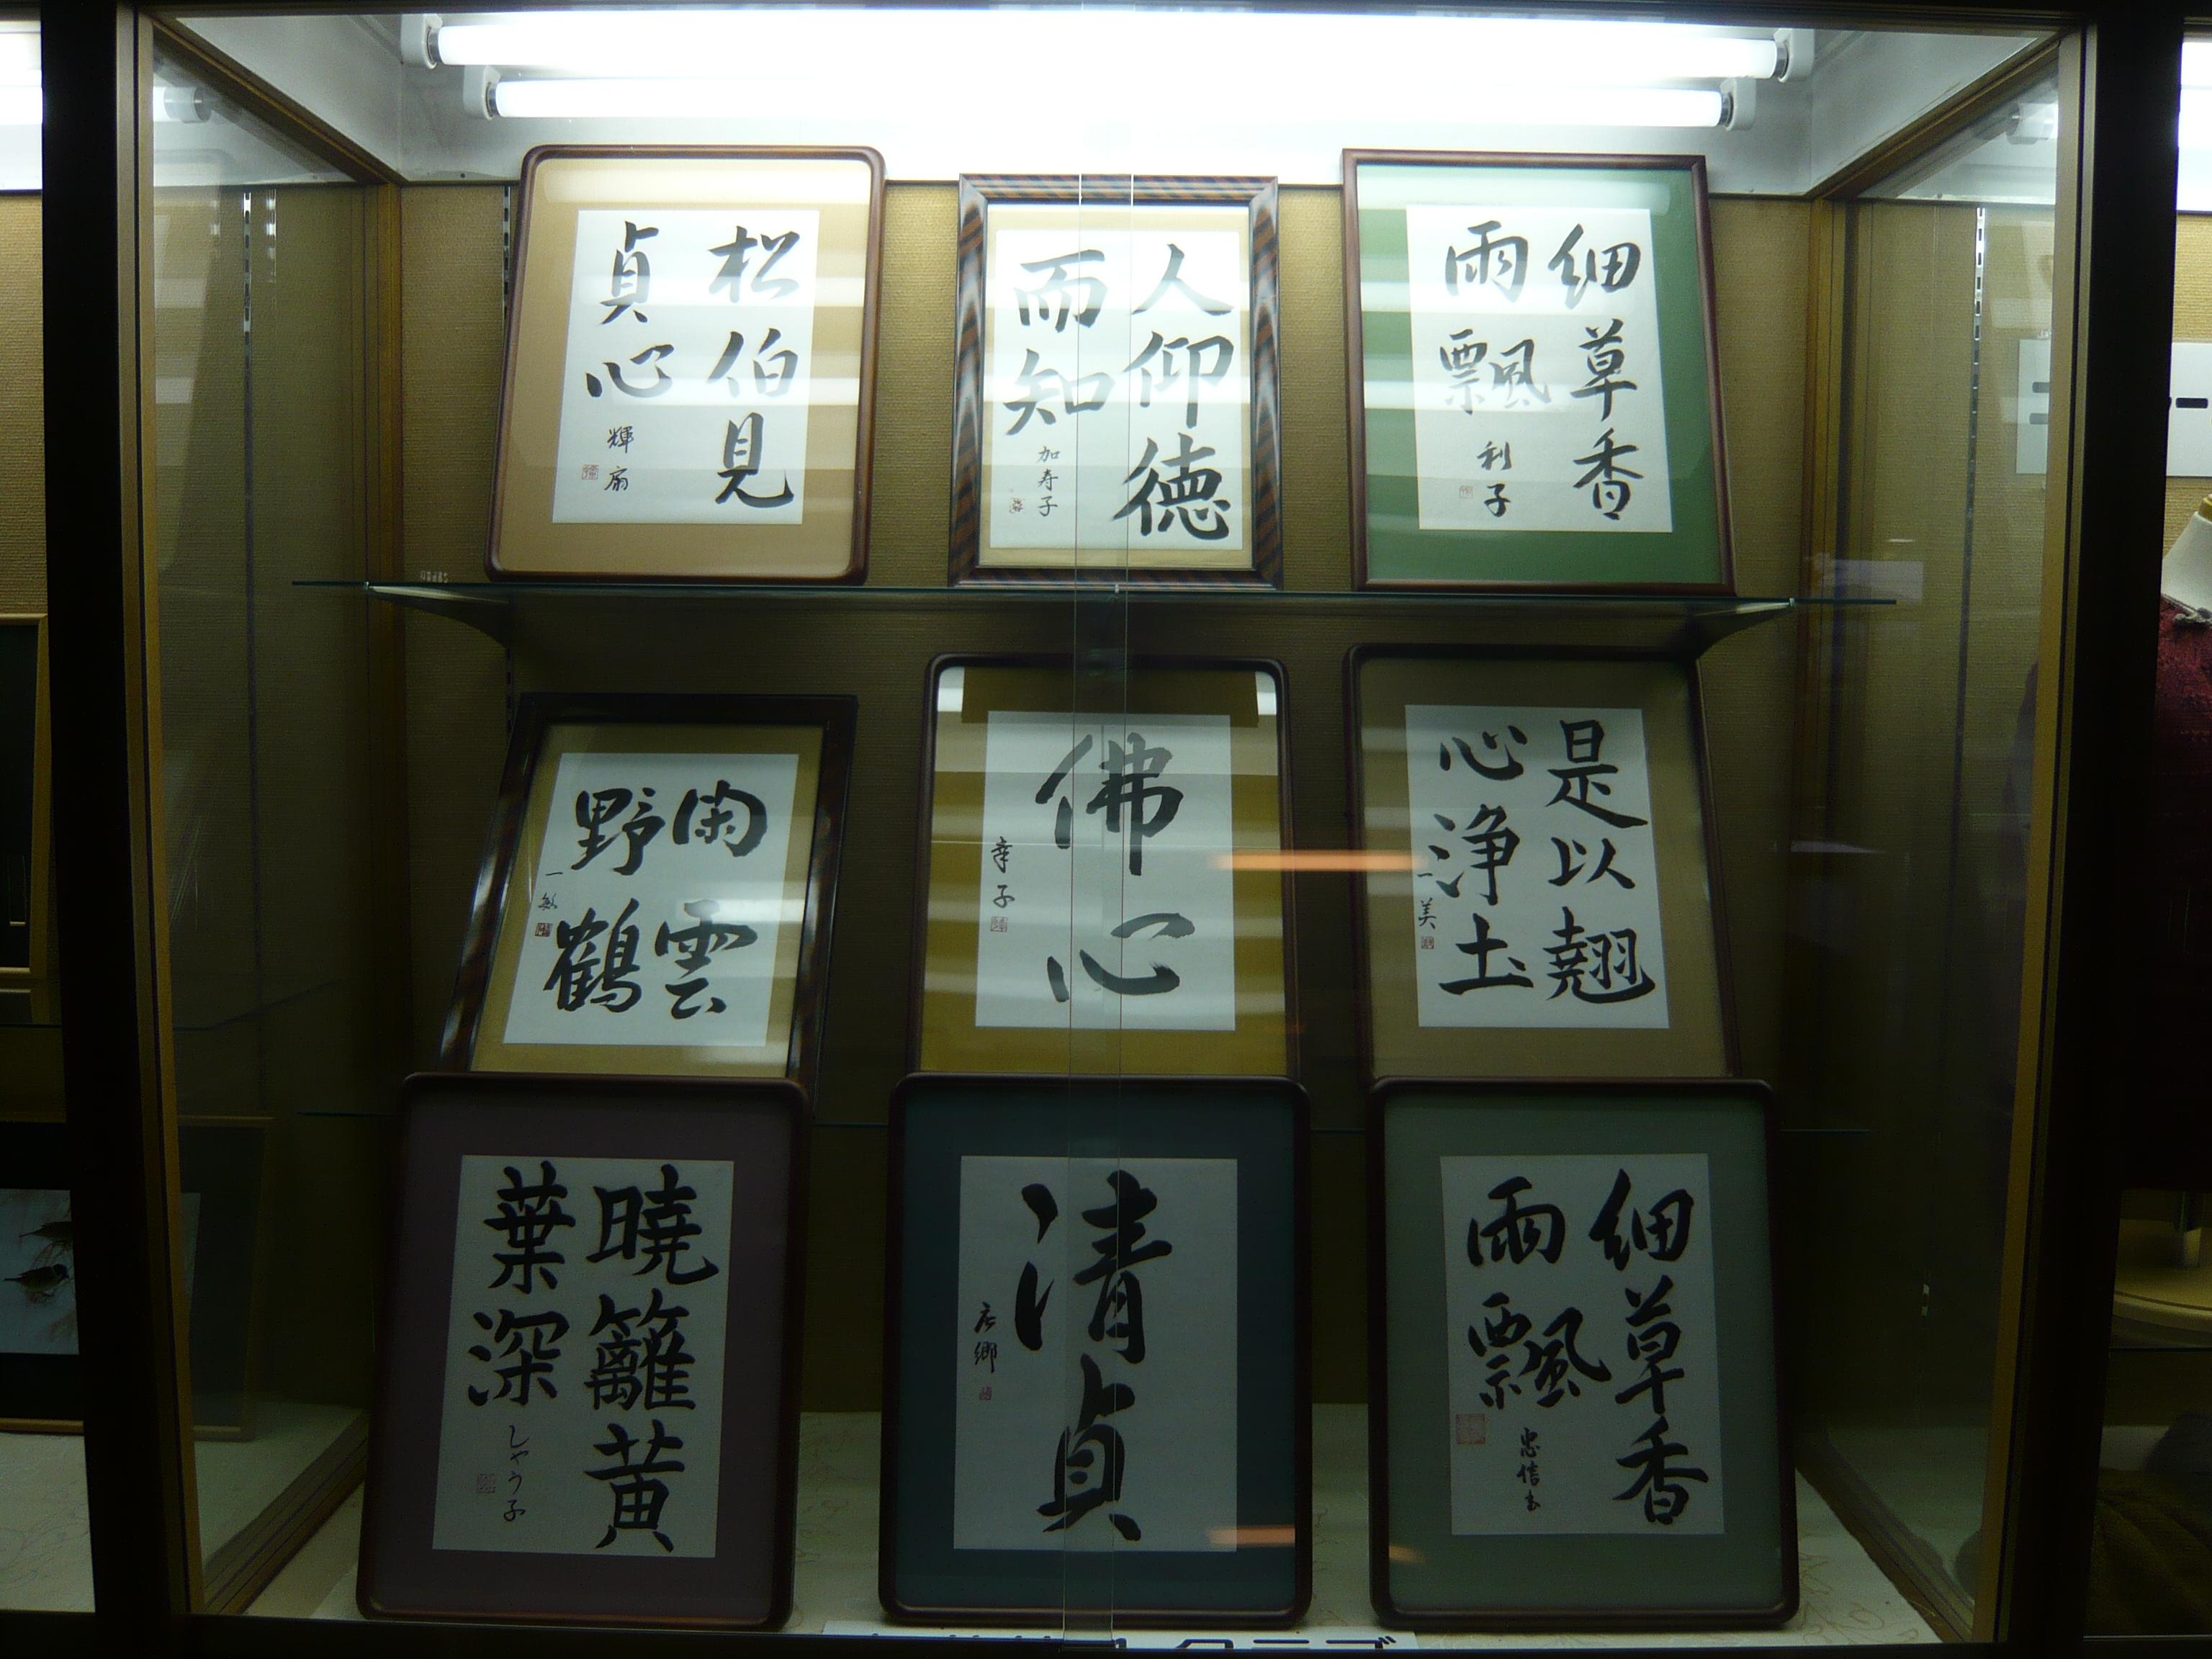 細草香
雨飄
利子
人仰徳
而知
加寿子
松伯見
貞心
輝扇
是以翹
心浄土
一美
佛心
幸子
閑雲
野鶴
一敏
細草香
雨飄
忠信書
清貞
曉籬黄
葉深
しやう子
クラブ